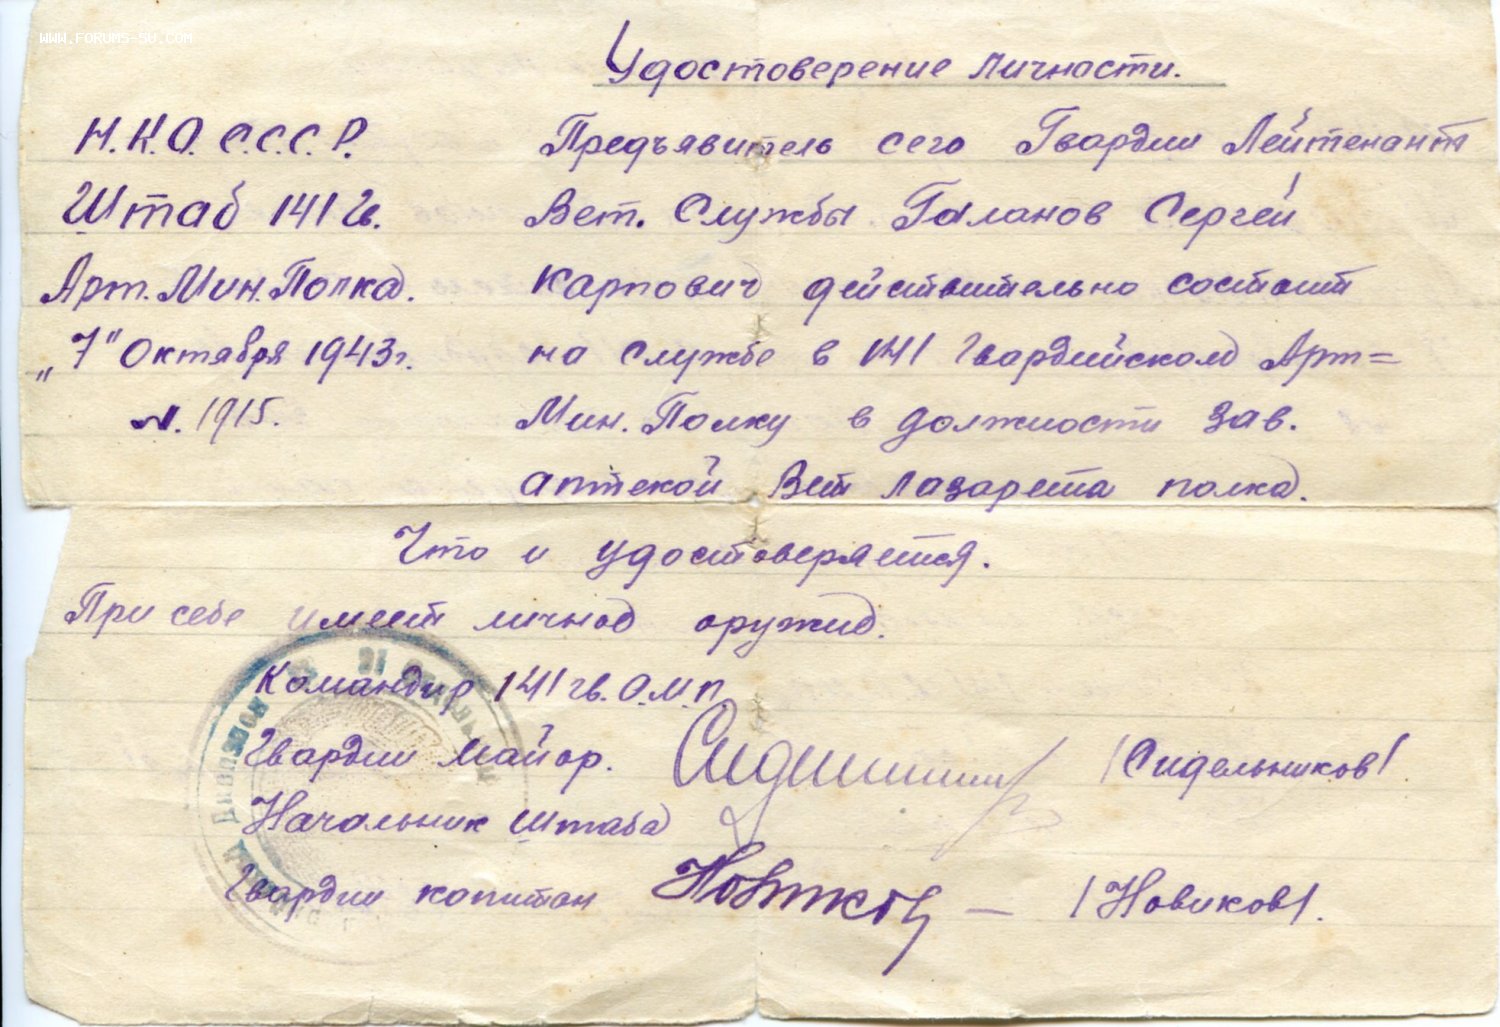 WWW.FORUMS-SU.COM
Удостоверение личности.
Н.К.О. С.С.С.Р.
Штаб 141 Гв.
Арт. Мин. Полка.
„7" Октября 1943 г.
N. 1915.
Предъявитель сего Гвардии Лейтенант
Вет. Службы Галанов Сергей
Карпович действительно состоит
на службе в 141 Гвардейском Арт=
Мин. Полку в должности зав.
аптекой Вет лазарета полка.
Что и удостоверяется.
При себе имеет личное оружие.
Командир 141 гв. О.М.П.
Гвардии Майор. /Сидельников/.
Начальник Штаба
Гвардии капитан Новиков — /Новиков/.